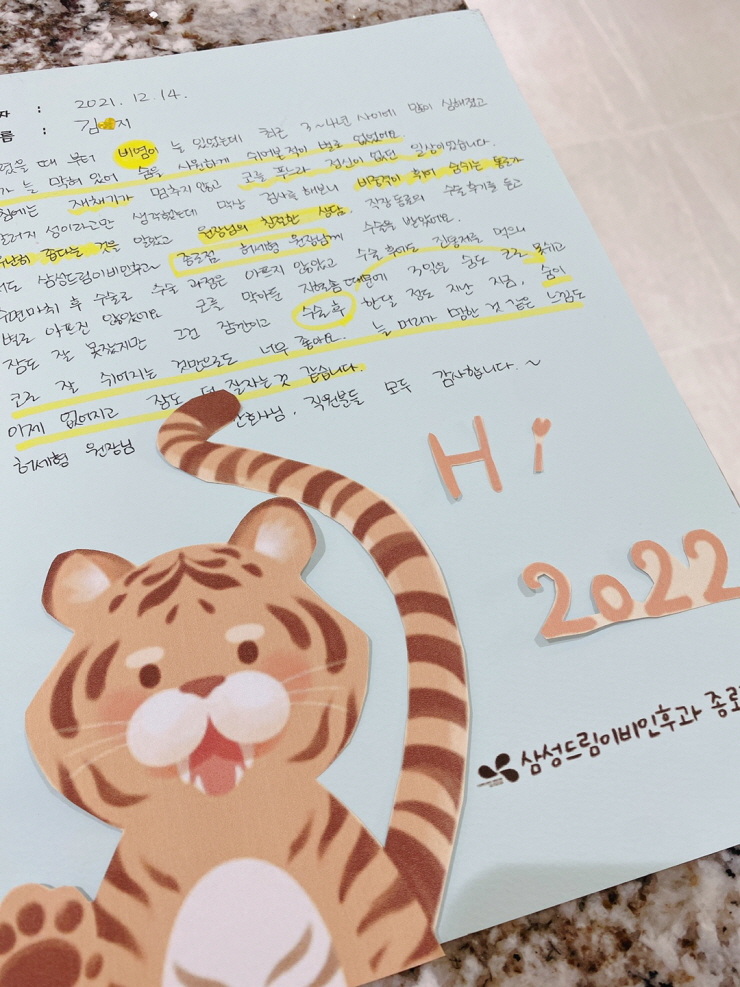 자 : 2021. 12. 14.
름 : 김 지
렸을 때 부터 비염이 늘 있었는데 최근 3~4년 사이에 많이 심해졌고
가 늘 막혀 있어 숨을 시원하게 쉬어본적이 별로 없었어요.
침에는 재채기가 멈추지 않고 코를 푸느라 정신이 없던 일상이었습니다.
알러지 성이라고만 생각했는데 막상 검사를 해보니 비중격이 휘어 숨쉬는 통로가
난히 좁다는 것을 알았고 원장님의 친절한 상담, 직장 동료의 수술후기를 듣고
저도 삼성드림이비인후과 종로점 허세형 원장님께 수술을 받았어요.
수면마취 후 수술로 수술 과정은 아프지 않았고 수술 후에도 진통제를 먹으니
별로 아프진 않았어요 코를 막아둔 지혈솜 때문에 3일을 숨도 코로 못쉬고
잠도 잘 못잤지만 그건 잠깐이고 수술 후 한달 정도 지난 지금, 숨이
코로 잘 쉬어지는 것만으로도 너무 좋아요. 늘 머리가 멍한 것 같은 느낌도
이제 없어지고 잠도 더 잘자는 것 같습니다.
허세형 원장님 간호사님, 직원분들 모두 감사합니다. ~
Hi
2022
삼성드림이비인후과 종로